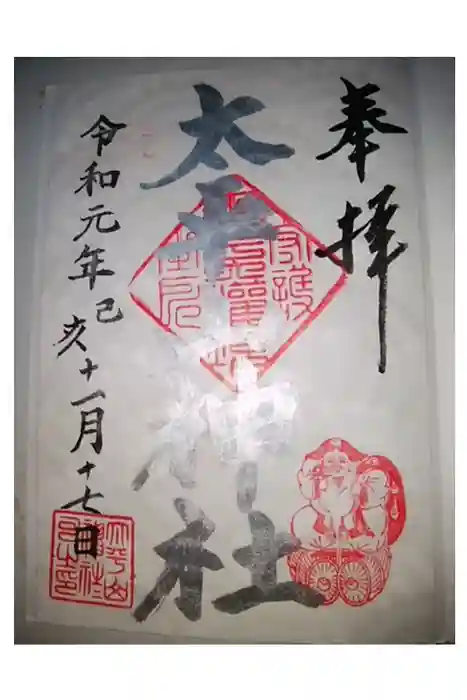 奉拝
太平神社
令和元年己亥十一月十七日